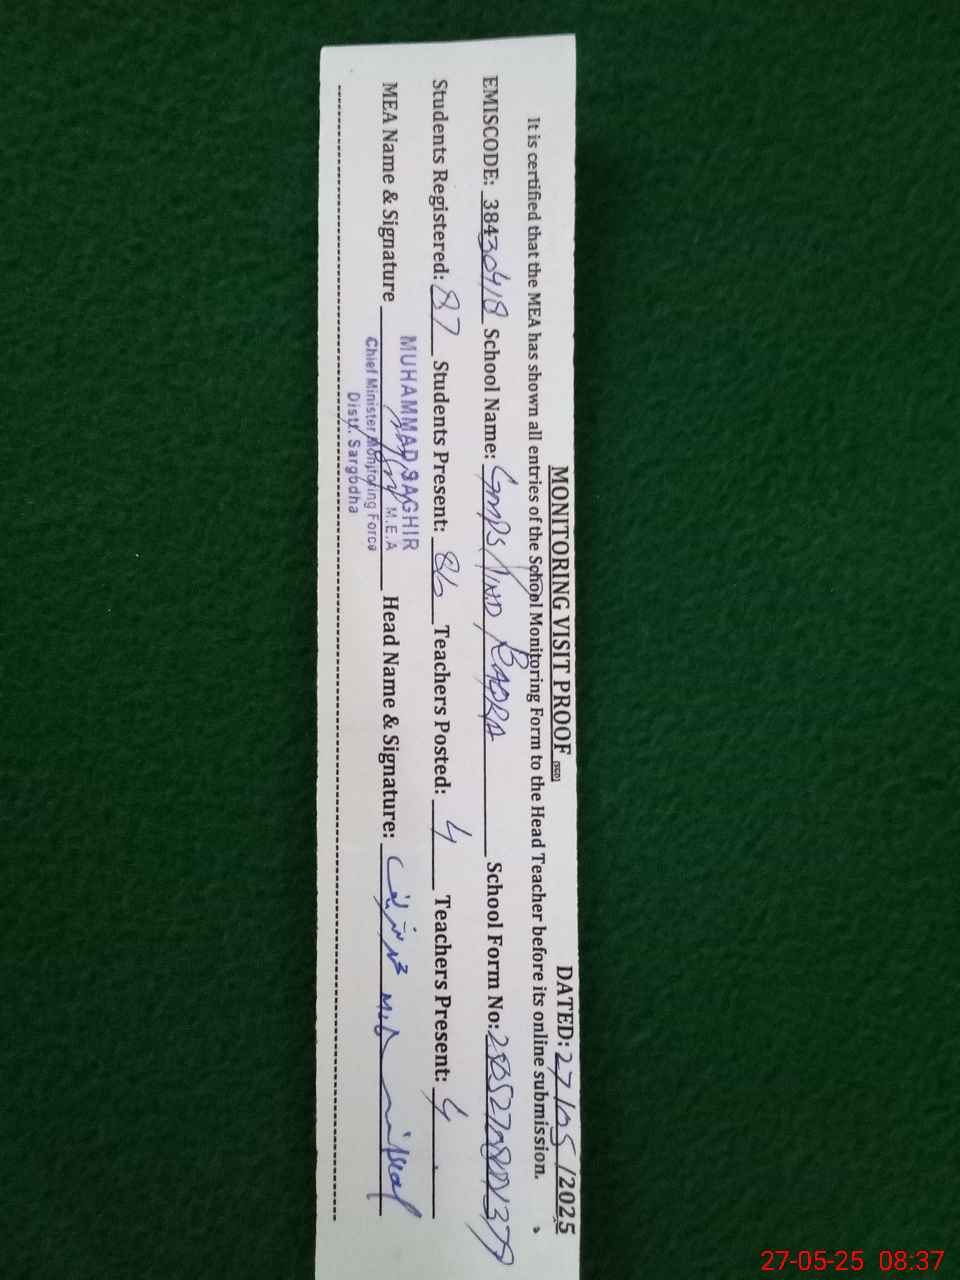 MONITORING VISIT PROOF (SGD) DATED: 27/05/2025
It is certified that the MEA has shown all entries of the School Monitoring Form to the Head Teacher before its online submission.
EMISCODE: 38430418 School Name: GMPS HIND BADRA School Form No:
Students Registered: 87 Students Present: 86 Teachers Posted: 4 Teachers Present: 4
MEA Name & Signature Head Name & Signature:
MUHAMMAD SAGHIR
M.E.A
Chief Minister Monitoring Force
Distt. Sargodha
27-05-25 08:37